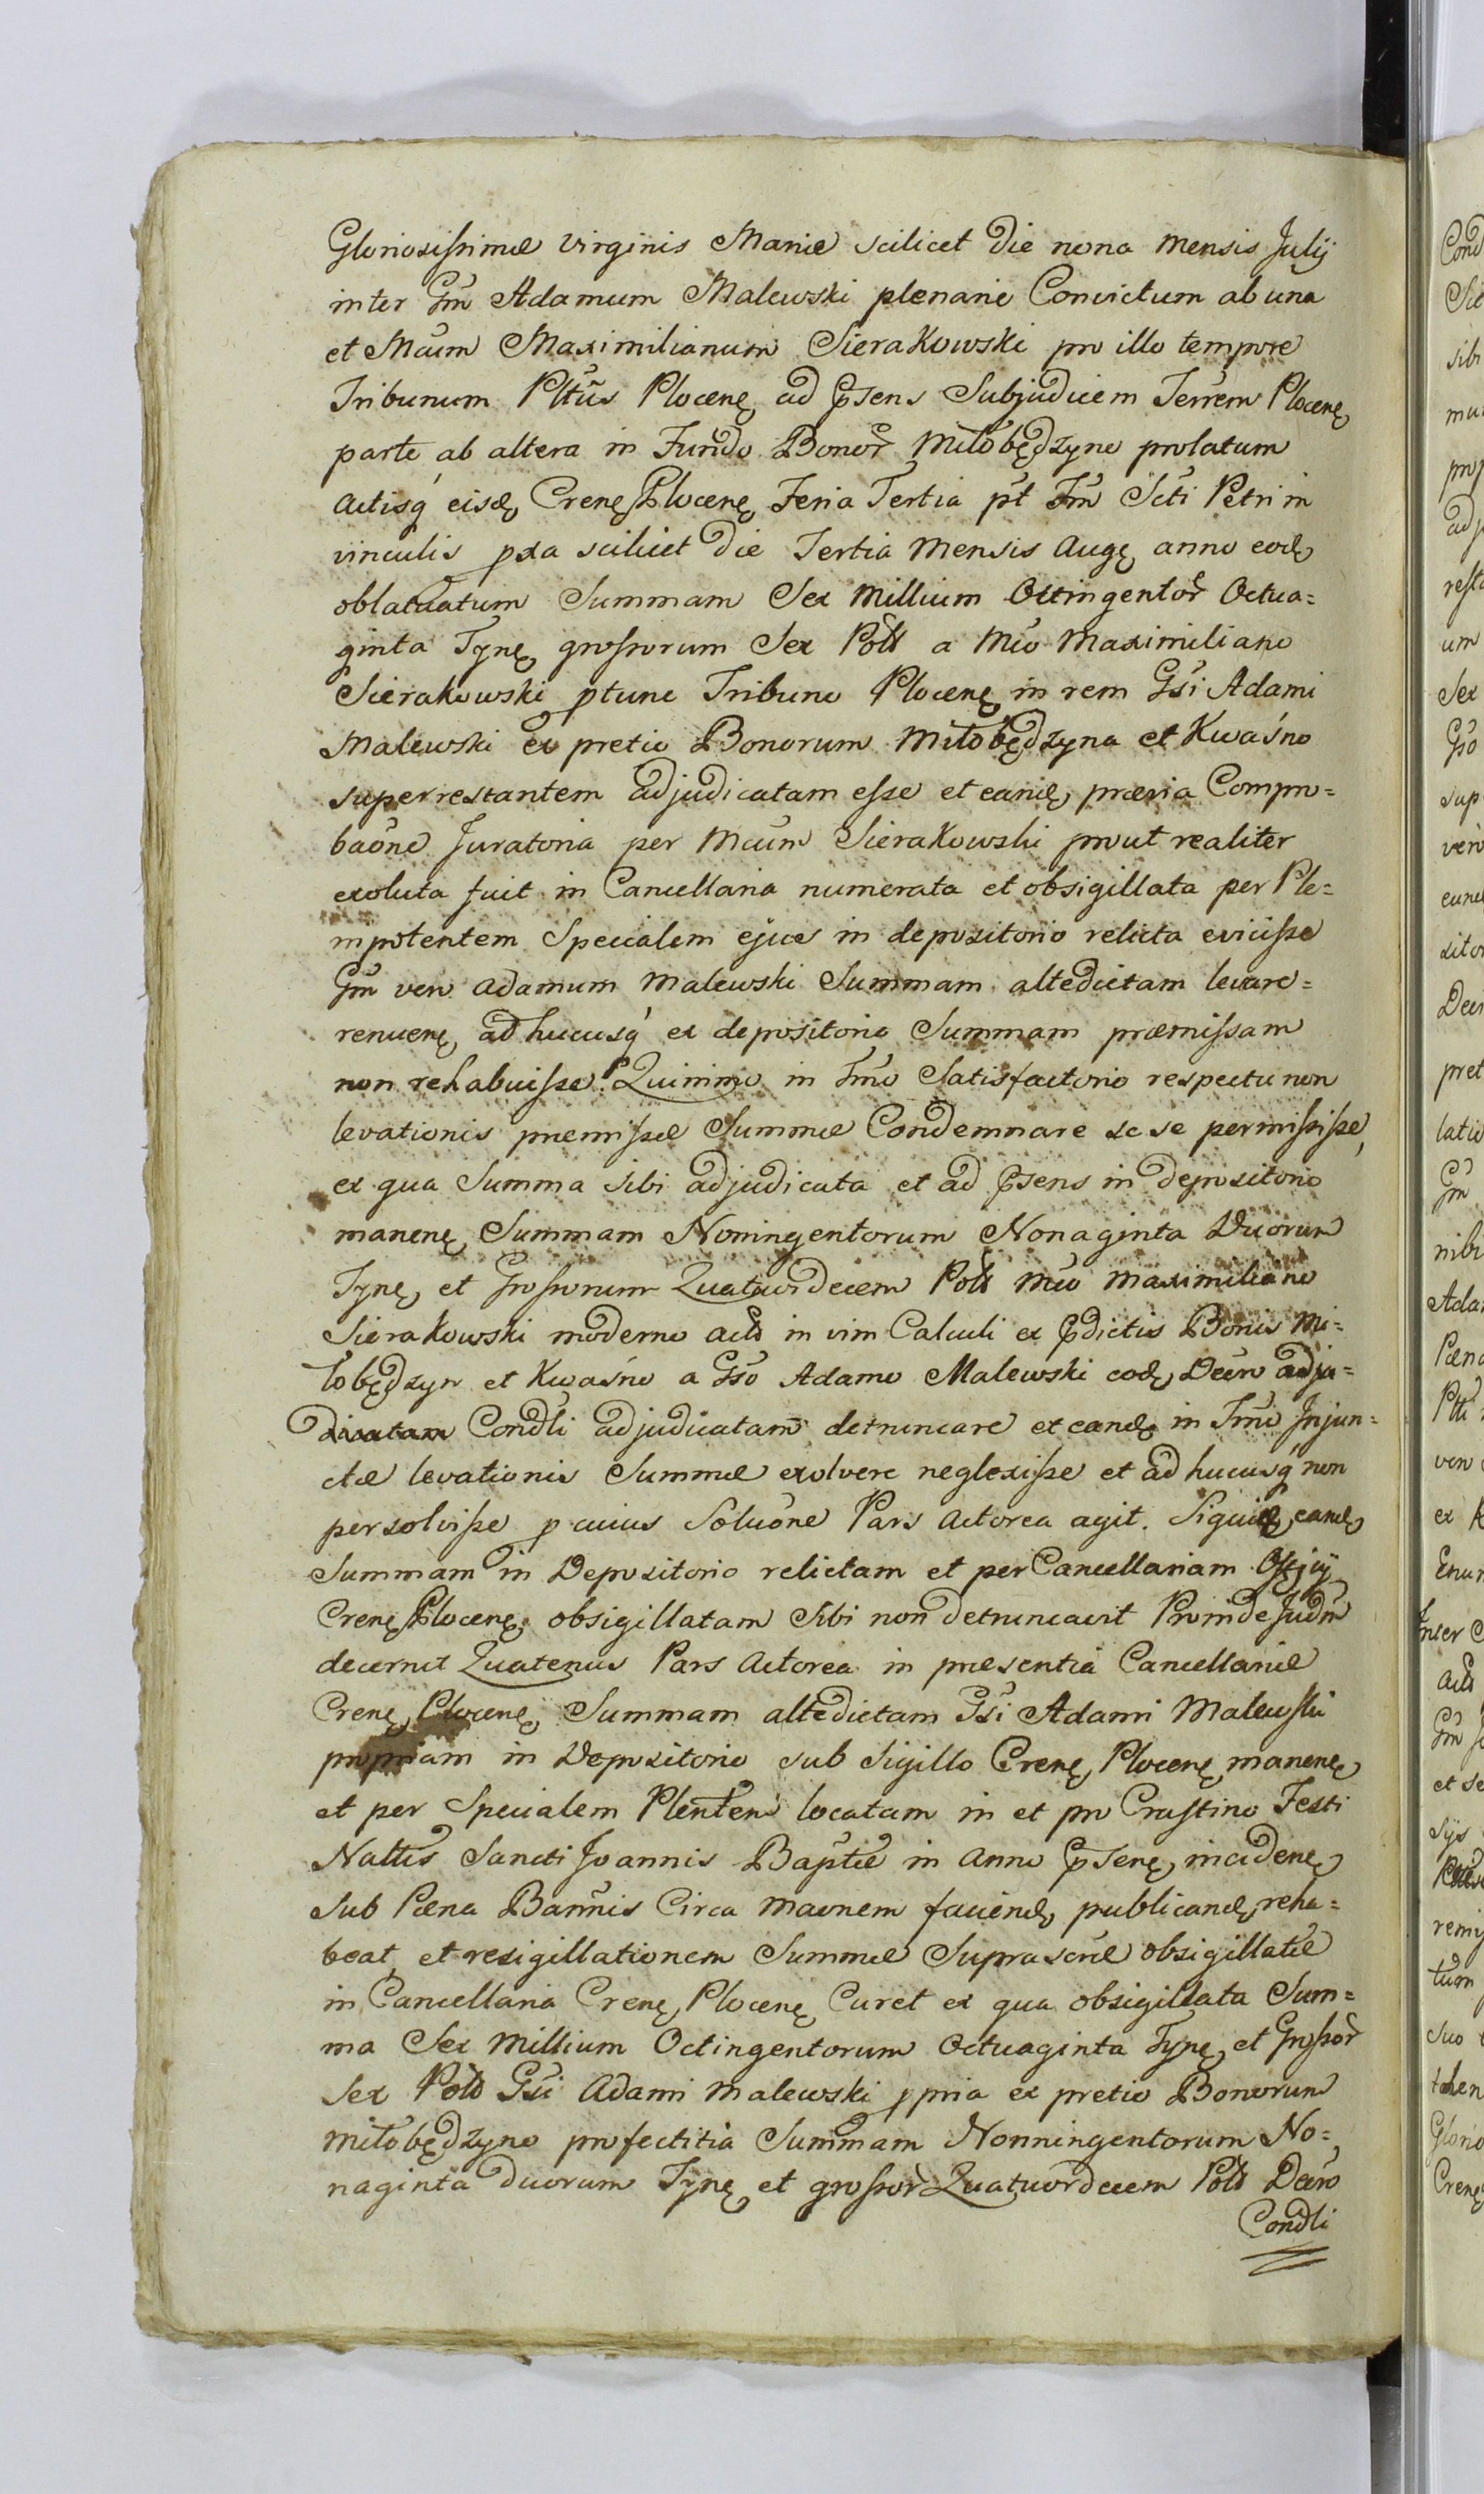 Gloriosissimæ Virginis Mariæ scilicet die nona mensis Julij
inter Gsm̃ Adamum Malewski plenarie Convictum ab una
et Mcum Maximilianum Sierakowski pro illo tempore
Tribunum Pltũs Plocenę ad Psens Subjudicem Terrem Plocenę
parte ab altera in Fundo Bonor̃ Miłobędzyno prolatum
actisq́ eisdę Crenę Plocenę Feria Tertia pt̃ Fm̃ Scti Petri in
vinculis pxa scilicet die Tertia Mensis augę anno eodę
oblatuatum Summam Sex Millium Octingentor̃ Octua=
ginta Tynę grossorum Sex Pold a Mco Maximiliano
Sierakowski ptunc Tribuno Plocenę in rem Gsi Adami
Malewski ex pretio Bonorum Miłobędzyna et Kwaśno
superrestantem adjudicatam esse et eandę prævia Compro=
baõne Juratoria per Mcum Sierakowski prout realiter
exoluta fuit in Cancellaria numerata et obsigillata per Ple=
nipotentem Specialem ejus in depositorio relicta evicisse
Gsm̃ vero Adamum Malewski Summam altedictam levare=
renuenę adhucusq́ ex depositorio Summam præmissam
non rehabuisse. Quinimo in Tm̃o Satisfactorio respectu non
levationis præmissæ Summæ Condemnare se se permisisse,
ex qua Summa sibi adjudicata et ad Psens in depositorio
manenę Summam Noningentorum Nonaginta Duorum
Tynę et Grossorum Quatuordecem Pold Mco Maximiliano
Sierakowski moderno actd in vim Calculi ex Pdictis Bonis Mi=
łobędzyn et Kwaśno a Gso Adamo Malewski eodę Decro adju=
dicatam Condli adjudicatam detruncare et eandę in Tm̃o Injun=
ctæ levationis Summæ exolvere neglexisse et adhucusq́ non
persolvisse p cuius Soluõne Pars Actorea agit. Siquidę eandę
Summam in Depositorio relictam et per Cancellariam Offjij
Crenę Plocenę obsigillatam Sibi non detruncavit Proinde Judm̃
decernit Quatenus Pars Actorea in præsentia Cancellariæ
Crenę Plocenę Summam altedictam Gsi Adami Malewski
propriam in Depositorio sub Sigillo Crenę Plocenę manenę
et per Specialem Plentem locatam in et pro Crastino Festi
Naltis Sancti Joannis Baptæ in Anno Psenę incidenę
Sub Pœna Bannis Circa maõnem faciendę publicandę reha=
beat, et resigillationem Summæ Suprascræ obsigillatæ
in Cancellaria Crenę Plocenę Curet ex qua obsigillata Sum=
ma Sex Millium Octingentorum Octuaginta Tynę et Grossor̃
Sex Pold Gsi Adami Malewski ppria ex pretio Bonorum
Miłobędzyno profectitia Summam Nonningentorum No=
naginta duorum Tynę et grossor̃ Quatuordecem Pold Decro
Condli